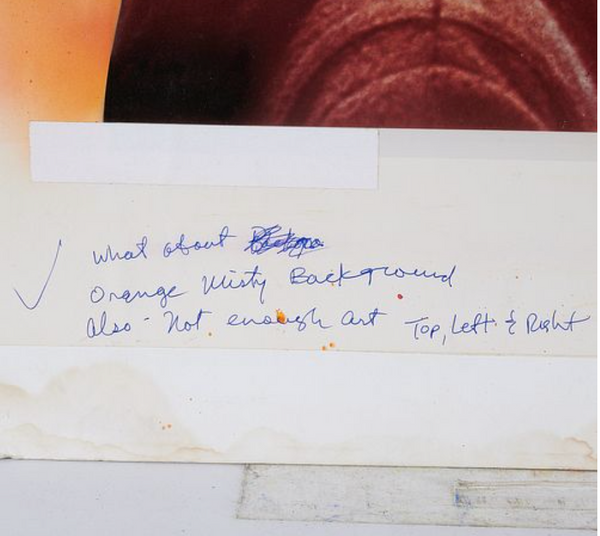 what about
Orange Misty Background
Also - Not enough art Top, Left & Right